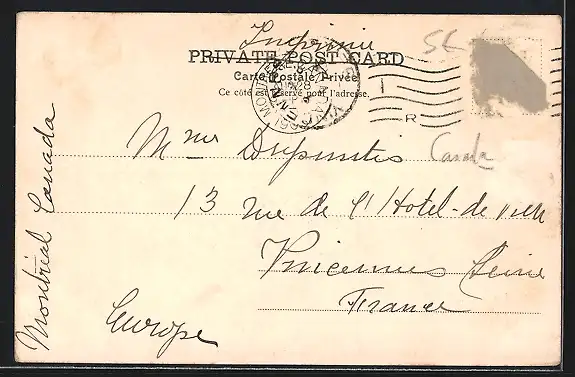 Imprimé
PRIVATE POST CARD
Carte Postale Privée
Ce côté est réservé pour l'adresse.
MONTREAL
I
R
Mme Canada
13 rue de l'Hotel-de ville
Vincennes Seine
France
Europe
Montréal Canada